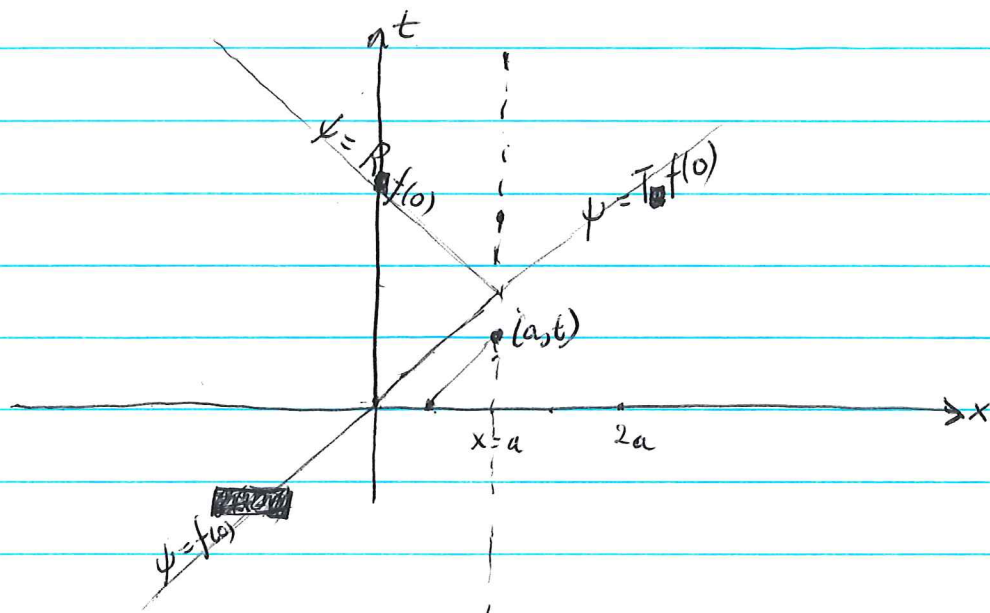 t
ψ = R f(0)
ψ = T f(0)
(a,t)
x
x=a
2a
ψ=f(0)